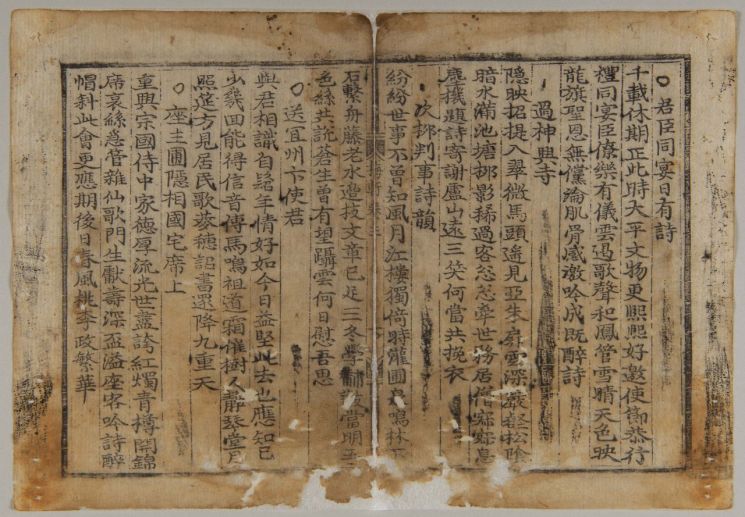 君臣同宴日有詩
千載休期正此時太平文物更熙熙好邀使御恭行
禮同宴臣僚樂有儀雲遏歌聲和鳳管雪晴天色映
龍旗聖恩無儻淪肌骨感激吟成既醉詩
過神興寺
隱映招提入翠微馬頭遙見亞朱扉雲深 松陰
暗水滿池塘柳影稀過客怱怱牽世務居僧寂寂息
塵機題詩寄謝廬山遠三笑何當共挽衣
次 判事詩韻
紛紛世事不曾知風月江樓獨倚時 圃 鳴林下
石繫舟藤老水邊枝文章已足三冬學 當明五
色絲共說蒼生曾有望躡雲何日慰吾思
送宜州卞使君
與君相識自髫年情好如今日益堅此去也應知已
少幾回能得信音傳馬鳴祖道霜催樹人靜琴堂月
照筵方見居民歌 詔書還降九重天
座主圃隱相國宅席上
重興宗國侍中家德厚流光世盡誇紅燭青樽開錦
席哀絲急管雜仙歌門生獻壽深盃溢座客吟詩醉
帽斜此會更應期後日春風桃李政繁華